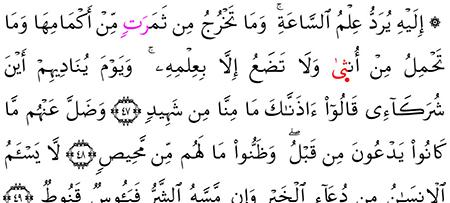 ۞ إِلَيْهِ يُرَدُّ عِلْمُ ٱلسَّاعَةِۚ وَمَا تَخْرُجُ مِن ثَمَرَٰتٖ مِّنۡ أَكۡمَامِهَا وَمَا
تَحْمِلُ مِنْ أُنثَىٰ وَلَا تَضَعُ إِلَّا بِعِلْمِهِۦۚ وَيَوْمَ يُنَادِيهِمْ أَيْنَ
شُرَكَآءِى قَالُوٓا۟ ءَاذَنَّـٰكَ مَا مِنَّا مِن شَهِيدٍ ﴿٤٧﴾ وَضَلَّ عَنْهُم مَّا
كَانُوا۟ يَدْعُونَ مِن قَبْلُۖ وَظَنُّوا۟ مَا لَهُم مِّن مَّحِيصٍ ﴿٤٨﴾ لَّا يَسْـَٔمُ
ٱلْإِنسَـٰنُ مِن دُعَآءِ ٱلْخَيْرِ وَإِن مَّسَّهُ ٱلشَّرُّ فَيَـُٔوسٌ قَنُوطٌ ﴿٤٩﴾